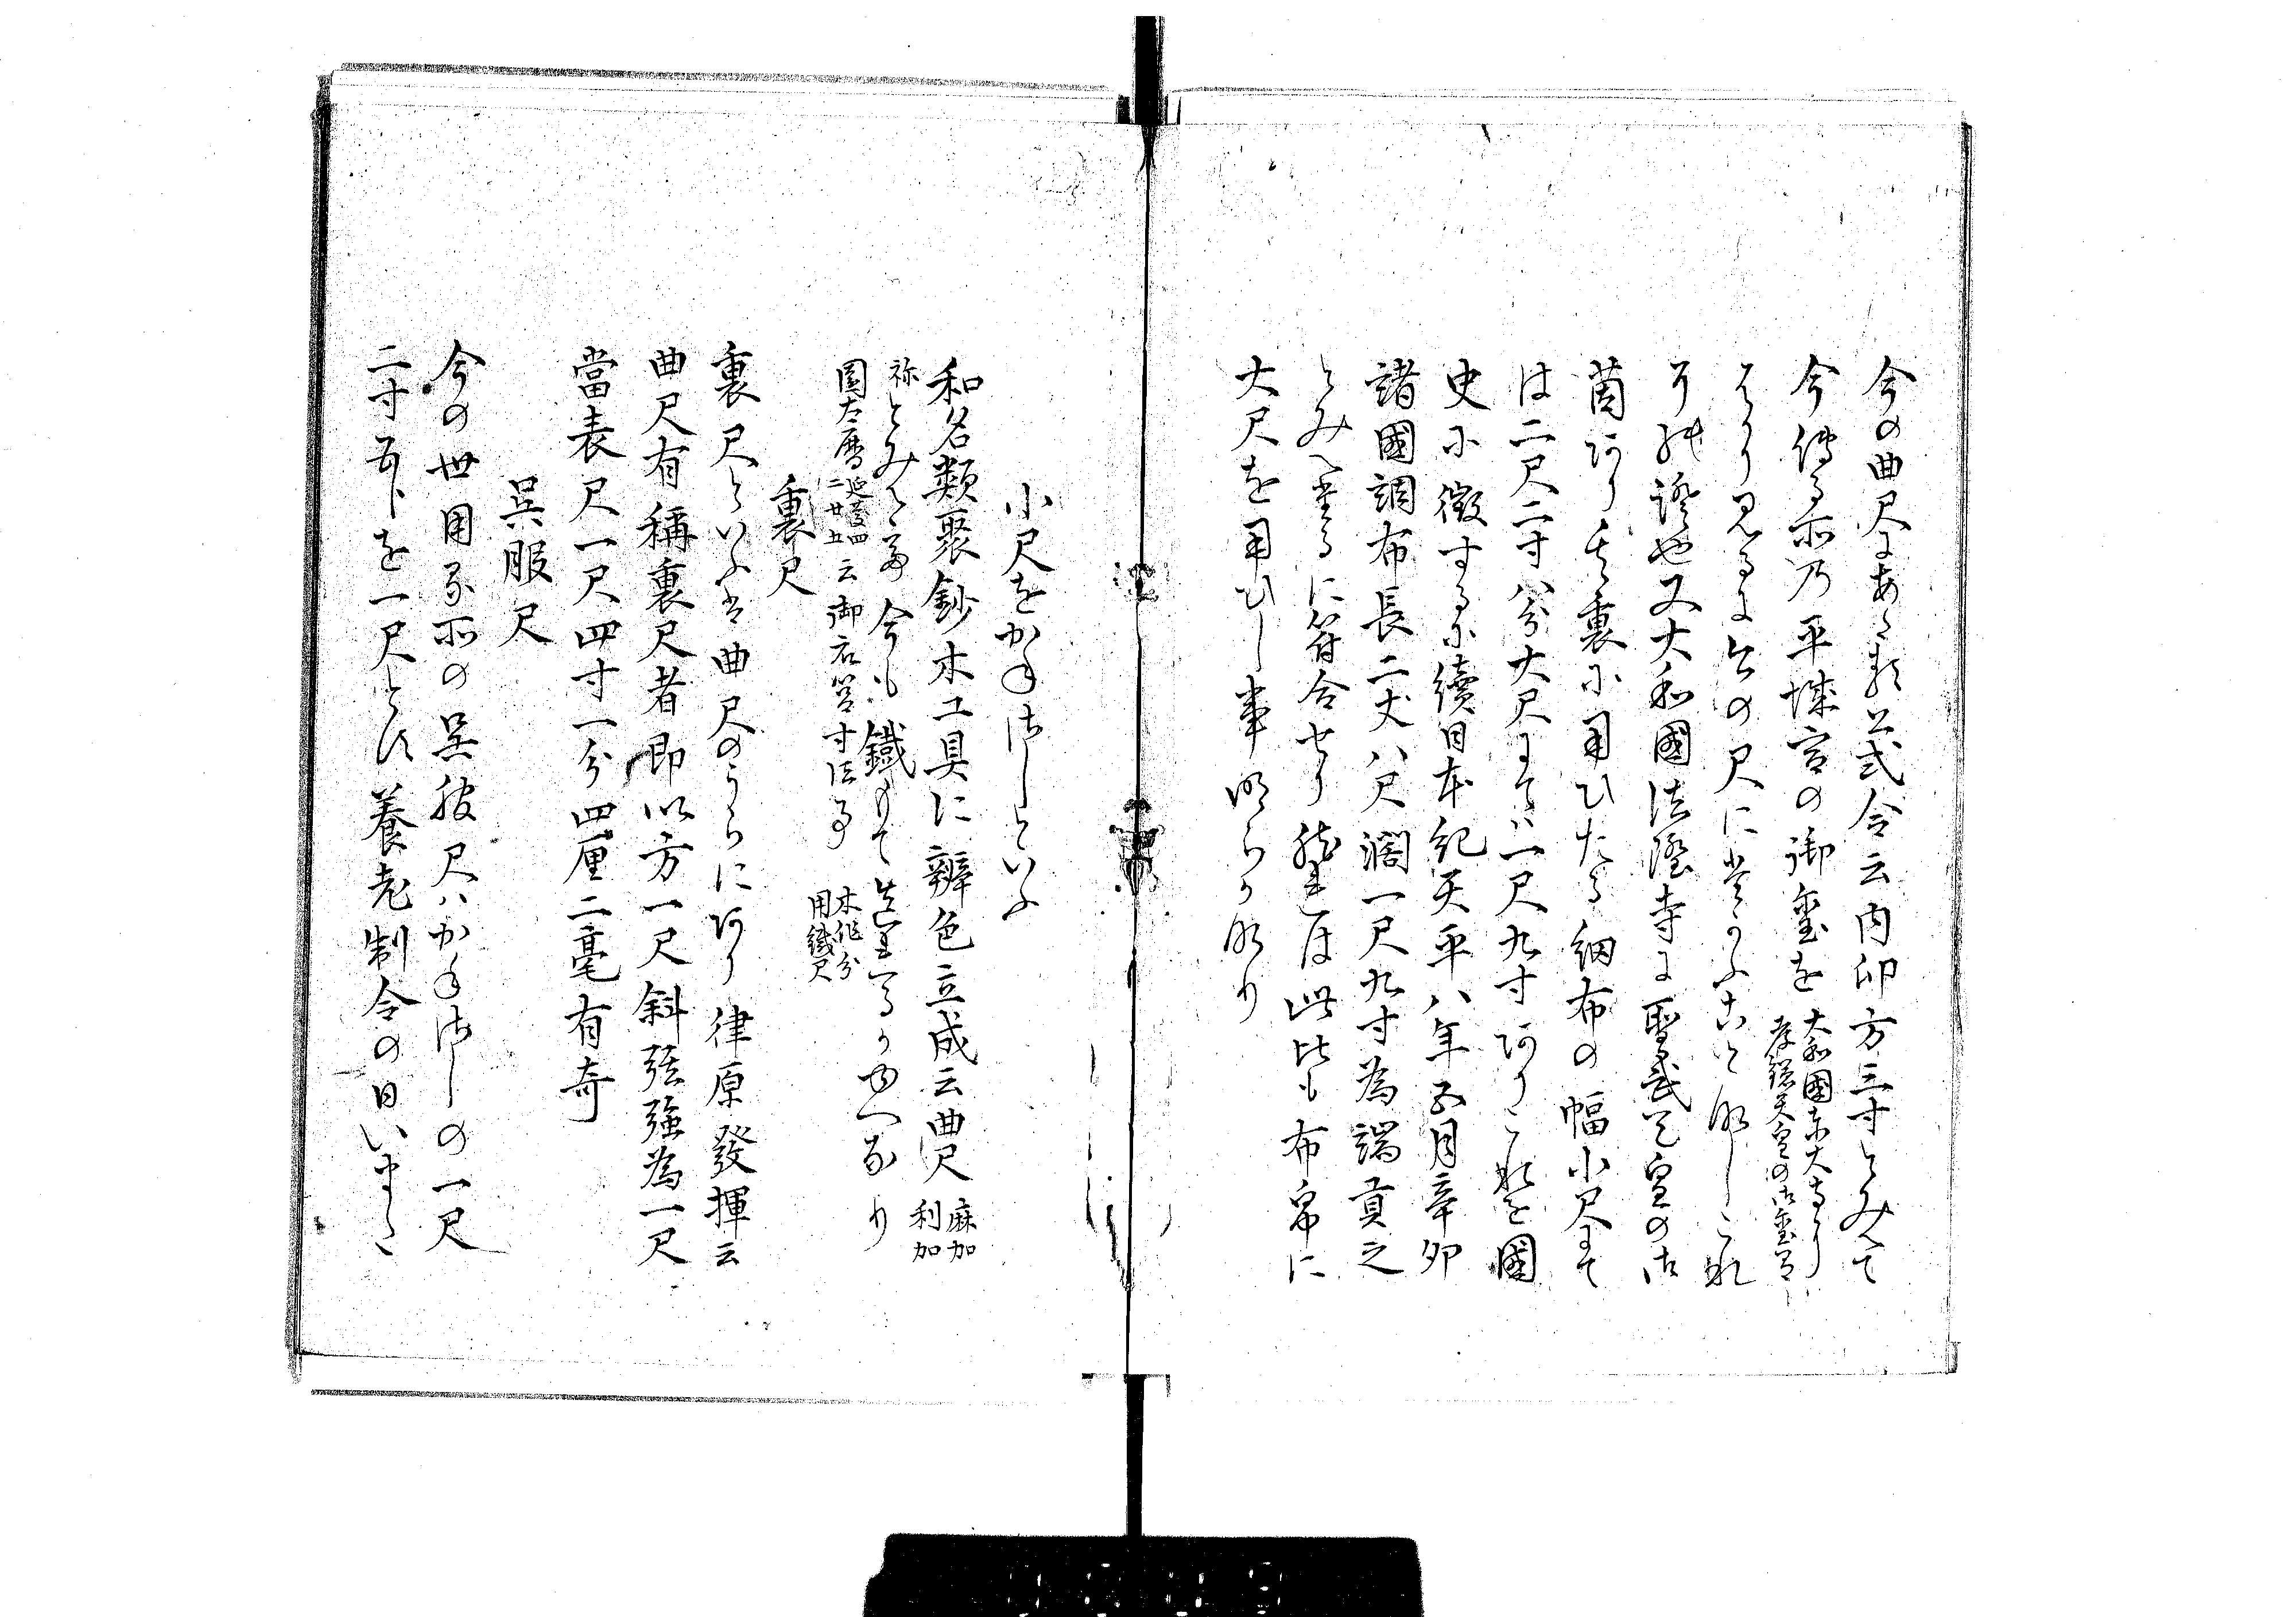 今の曲尺にあたる公式令云内印方三寸とみえて
今傳る所乃平城宮の御璽を大和國東大寺にあり孝謙天皇の御璽なり
はかり見るに今の尺に違ふことなしこれ
その證也又大和國法隆寺に聖武天皇の御
茵あり其裏に用ひたる細布の幅小尺にて
は二尺二寸八分大尺にては一尺九寸ありこれを國
史に徴するに續日本紀天平八年五月辛卯
諸國調布長二丈八尺濶一尺九寸為端貢之
とみへたるに符合せり然れは此比も布帛に
大尺を用ひし事明らかなり
小尺をかねさしといふ
和名類聚鈔木工具に辨色立成云曲尺麻加利加
祢とみゆ今も鐵にて造るかゆへなり
園太暦延慶四二廿五云御石笞寸法事木作分用鐵尺
裏尺
裏尺といふは曲尺のうらにあり律原發揮云
曲尺有稱裏尺者即以方一尺斜弦強為一尺
當表尺一尺四寸一分四厘二毫有奇
呉服尺
今の世用る所の呉服尺はかねさしの一尺
二寸五分を一尺とす養老制令の日いまた